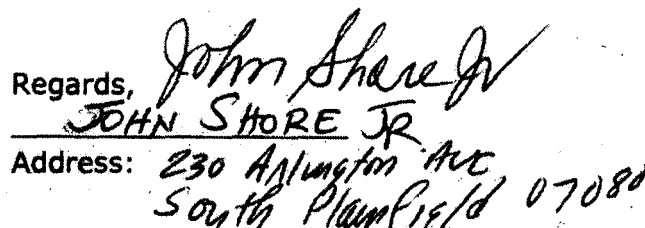 Regards, John Shore Jr
JOHN SHORE JR
Address: 230 Arlington Ave
South Plainfield 07080